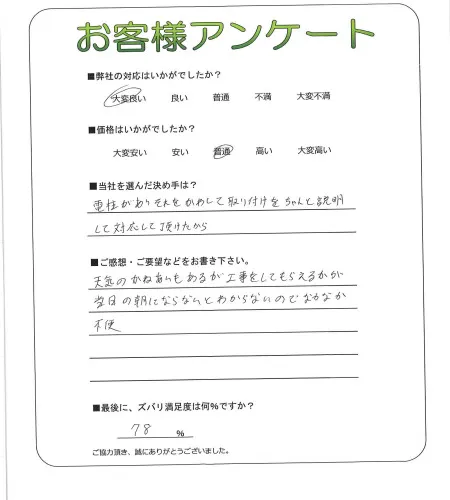 お客様アンケート
■弊社の対応はいかがでしたか?
大変良い 良い 普通 不満 大変不満
■価格はいかがでしたか?
大変安い 安い 普通 高い 大変高い
■当社を選んだ決め手は?
電柱がありそれをかわして取り付けをちゃんと説明
して対応して頂けたから
■ご感想・ご要望などをお書き下さい。
天気のかねあいもあるが工事をしてもらえるかが
当日の朝にならないとわからないのでなかなか
不便
■最後に、ズバリ満足度は何%ですか?
78 %
ご協力頂き、誠にありがとうございました。